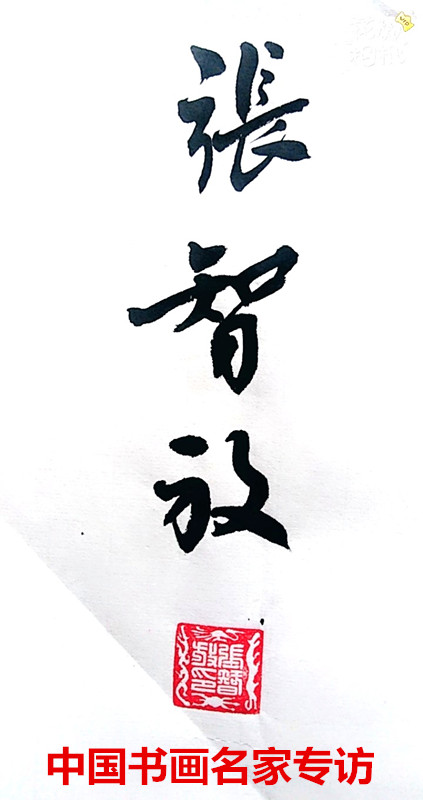 張
智
放
中国书画名家专访